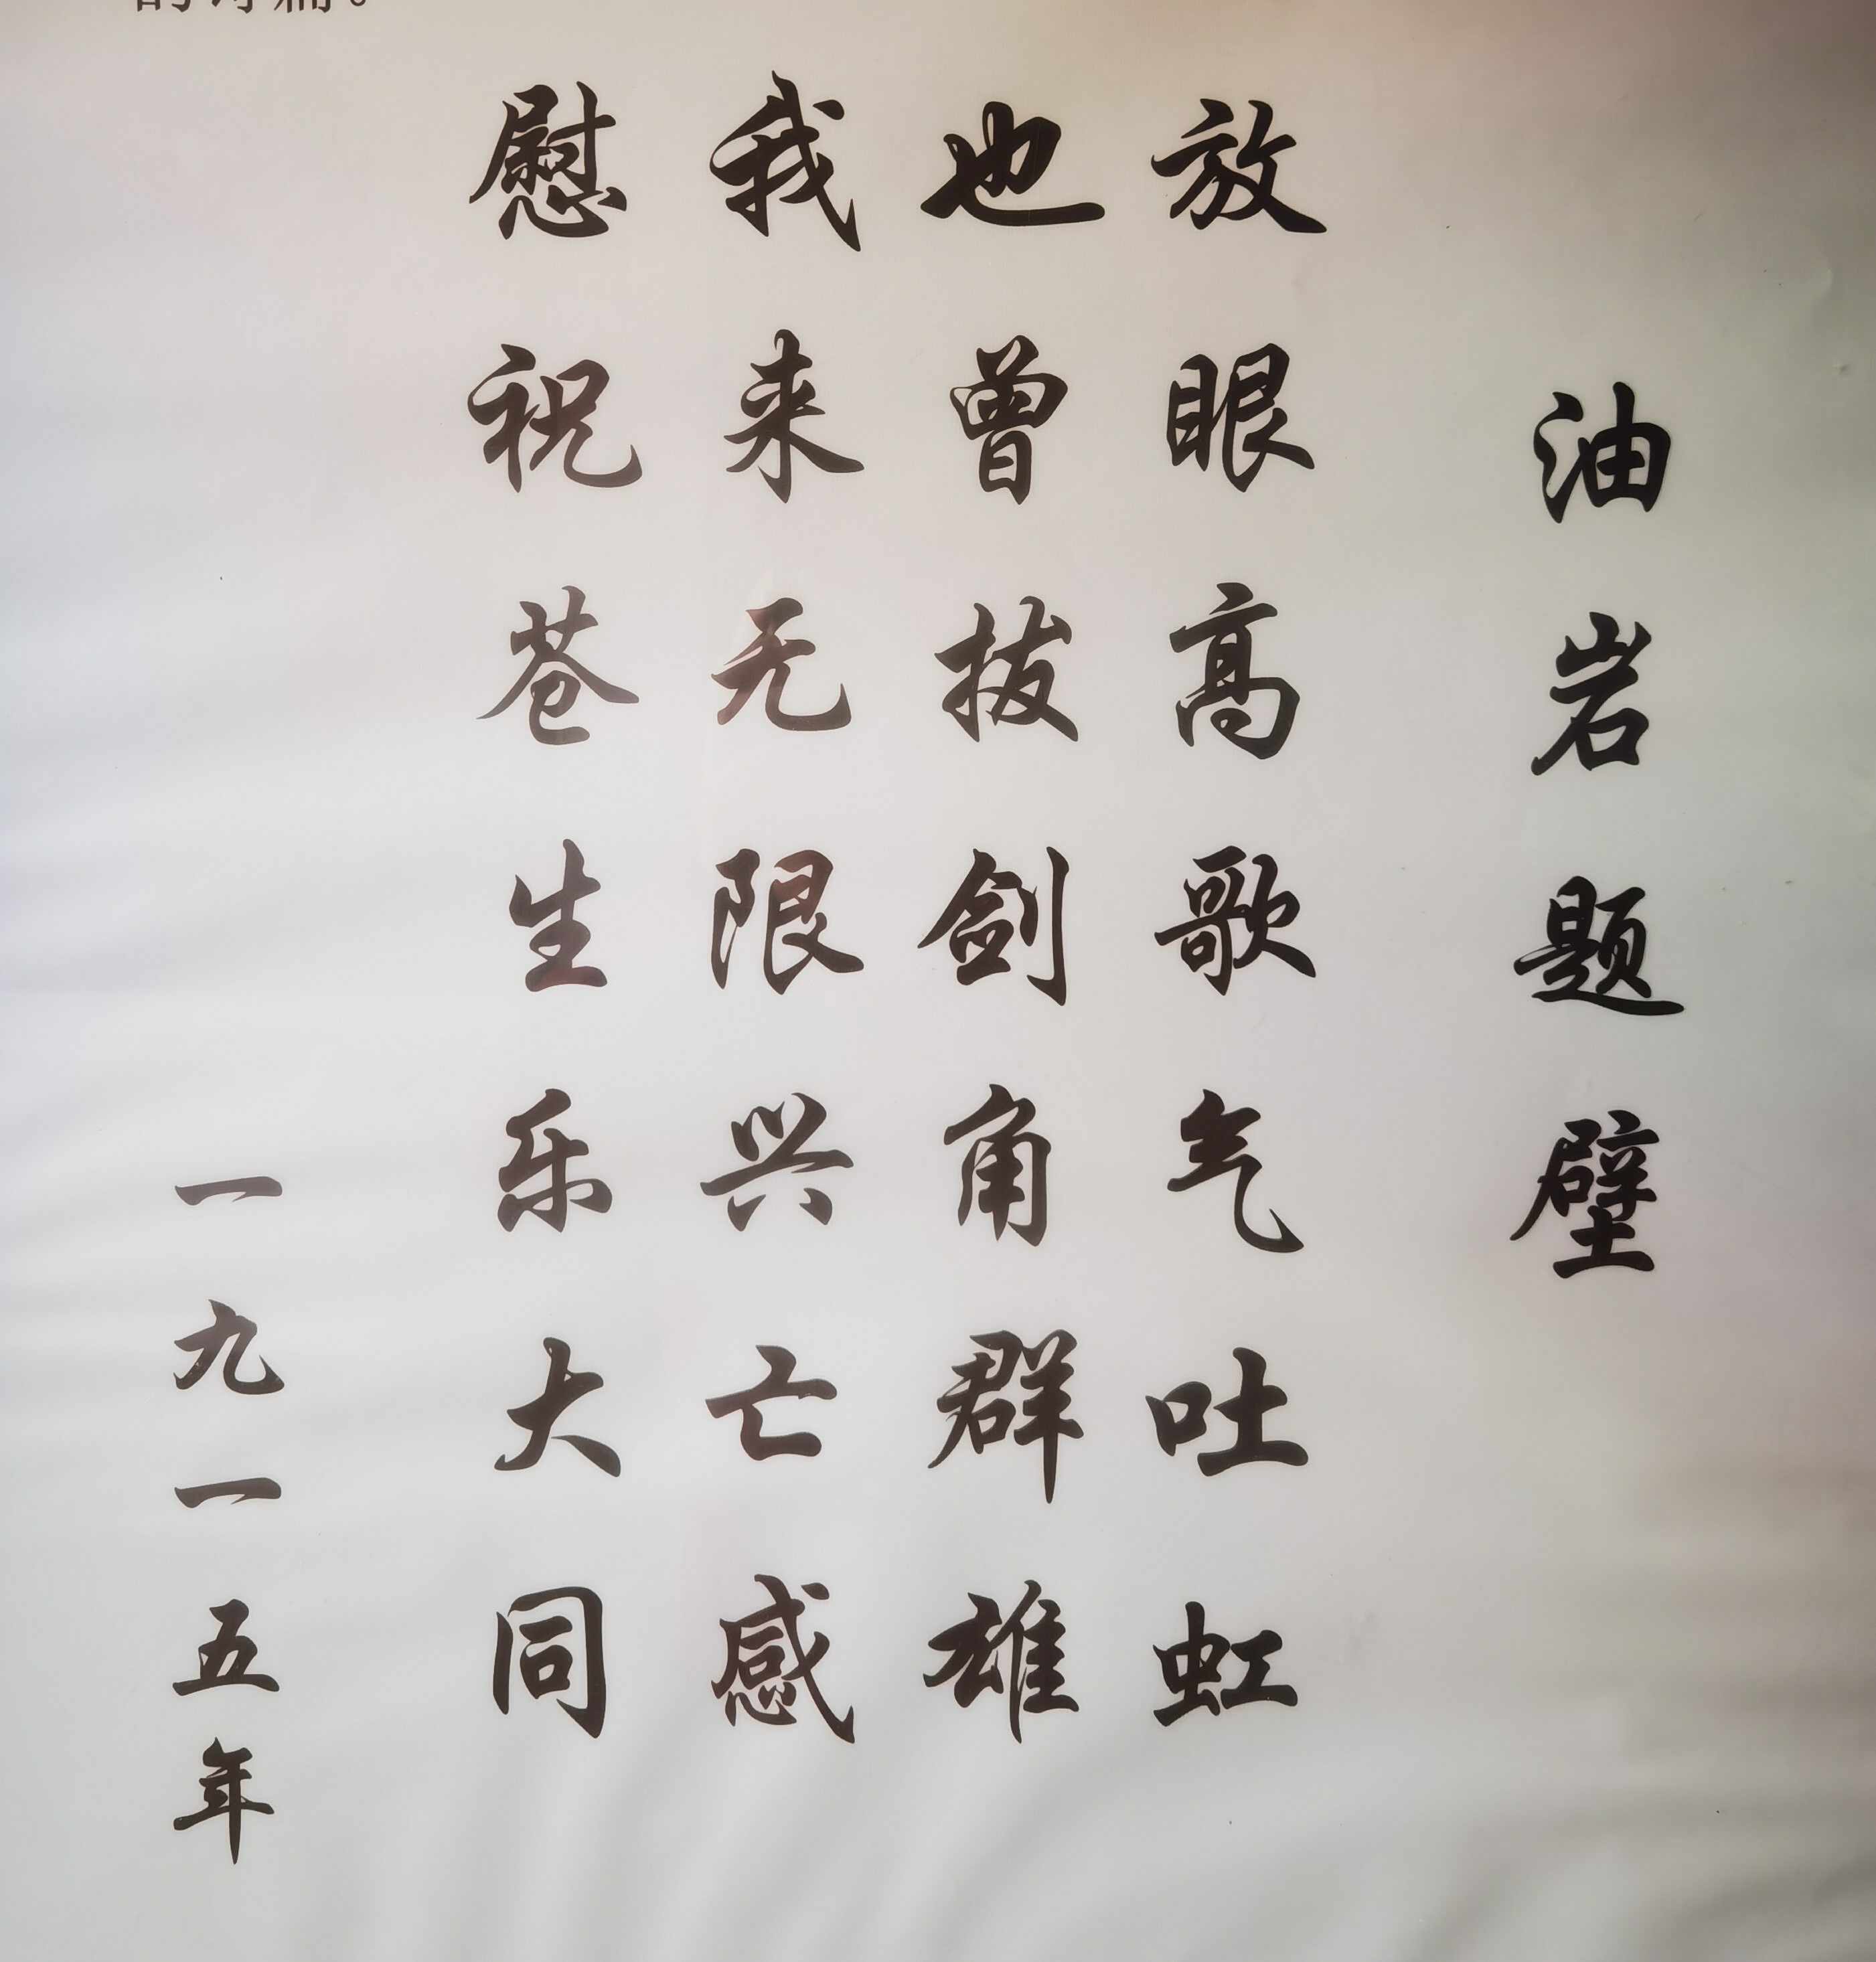 油岩题壁
放眼高歌气吐虹
也曾拔剑角群雄
我来无限兴亡感
慰祝苍生乐大同
一九一五年